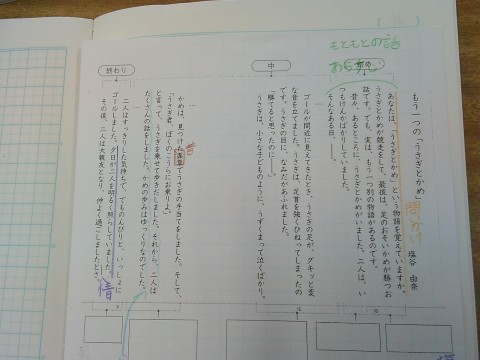 もともとの話
もう一つの「うさぎとかめ」
塩谷 由奈
問いかけ
あなたは、「うさぎとかめ」という物語を覚えていますか。
うさぎとかめが競走をして、最後は、足のおそいかめが勝つお
話です。でも、実は、もう一つ別の物語があるのです。
昔々、あるところに、うさぎとかめがいました。二人は、い
つもけんかばかりしていました。
そんなある日、――。
中
ゴールが間近に見えてきたとき、うさぎの足が、グキッと変
な音を立てました。うさぎは、足首を強くひねってしまったの
です。うさぎの目に、なみだがあふれました。
「勝てると思ったのに――。」
うさぎは、小さな子どものように、うずくまって泣くばかり。
かめは、見つけた薬草でうさぎの手当てをしました。そして、
「うさぎ君、ぼくのこうらにお乗りよ。」
と言って、うさぎを乗せて歩きだしました。それから、二人は
たくさんの話をしました。かめの歩みはゆっくりなのでした。
終わり
二人はすっきりした気持ちで、でものんびりと、いっしょに
ゴールしました。夕日が二人を明るく照らしていました。
その後、二人は大親友となり、仲よく過ごしましたとさ。